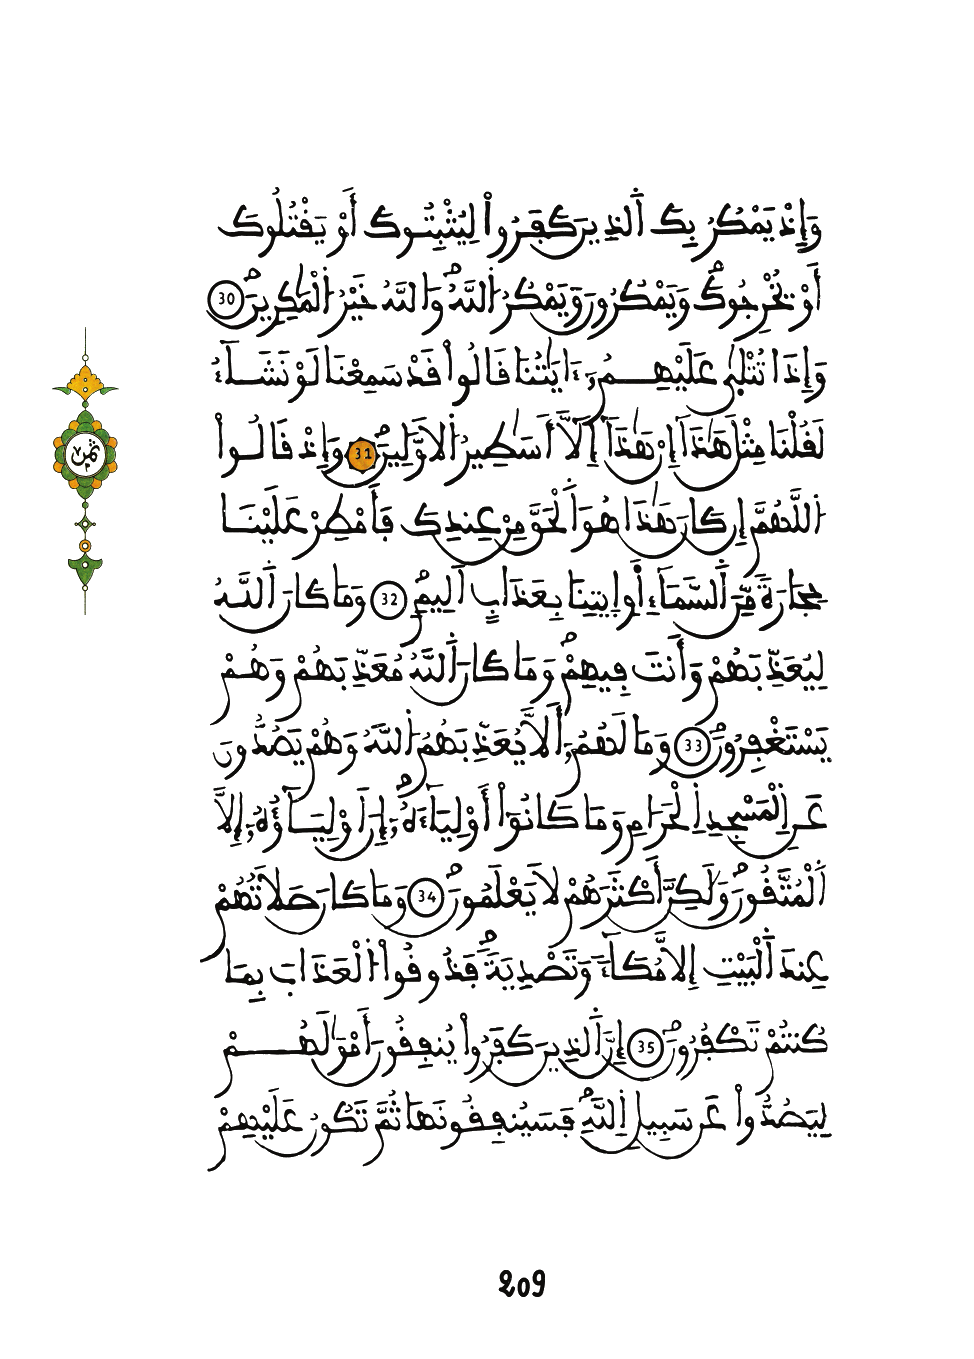 وَإِذْ يَمْكُرُ بِكَ اَلذِينَ كَفَرُواْ لِيُثْبِتُوكَ أَوْ يَقْتُلُوكَ
أَوْ يُخْرِجُوكَ وَيَمْكُرُونَ وَيَمْكُرُ اُللَّهُ وَاللَّهُ خَيْرُ اُلْمَٰكِرِينَ 30
وَإِذَا تُتْلَىٰ عَلَيْهِمُۥٓ ءَايَٰتُنَا قَالُواْ قَدْ سَمِعْنَا لَوْ نَشَآءُ
لَقُلْنَا مِثْلَ هَٰذَآ إِنْ هَٰذَآ إِلَّآ أَسَٰطِيرُ اُلَاوَّلِينَ 31 وَإِذْ قَالُواْ
اُللَّهُمَّ إِن كَانَ هَٰذَا هُوَ اَلْحَقَّ مِنْ عِندِكَ فَأَمْطِرْ عَلَيْنَا
حِجَارَةً مِّنَ اَلسَّمَآءِ اَ۬وِ اِيتِنَا بِعَذَابٍ اَلِيمٍ 32 وَمَا كَانَ اَللَّهُ
لِيُعَذِّبَهُمْ وَأَنتَ فِيهِمْ وَمَا كَانَ اَللَّهُ مُعَذِّبَهُمْ وَهُمْ
يَسْتَغْفِرُونَ 33 وَمَا لَهُمُۥٓ أَلَّا يُعَذِّبَهُمُ اُللَّهُ وَهُمْ يَصُدُّونَ
عَنِ اِلْمَسْجِدِ اِلْحَرَامِ وَمَا كَانُوٓاْ أَوْلِيَآءَهُۥٓ إِنَ اَوْلِيَآؤُهُۥٓ إِلَّا
اَلْمُتَّقُونَ وَلَٰكِنَّ أَكْثَرَهُمْ لَا يَعْلَمُونَ 34 وَمَا كَانَ صَلَاتُهُمْ
عِندَ اَلْبَيْتِ إِلَّا مُكَآءً وَتَصْدِيَةً فَذُوقُواْ اُلْعَذَابَ بِمَا
كُنتُمْ تَكْفُرُونَ 35 إِنَّ اَلذِينَ كَفَرُواْ يُنفِقُونَ أَمْوَٰلَهُمْ
لِيَصُدُّواْ عَن سَبِيلِ اِللَّهِ فَسَيُنفِقُونَهَا ثُمَّ تَكُونُ عَلَيْهِمْ
ثمن
209